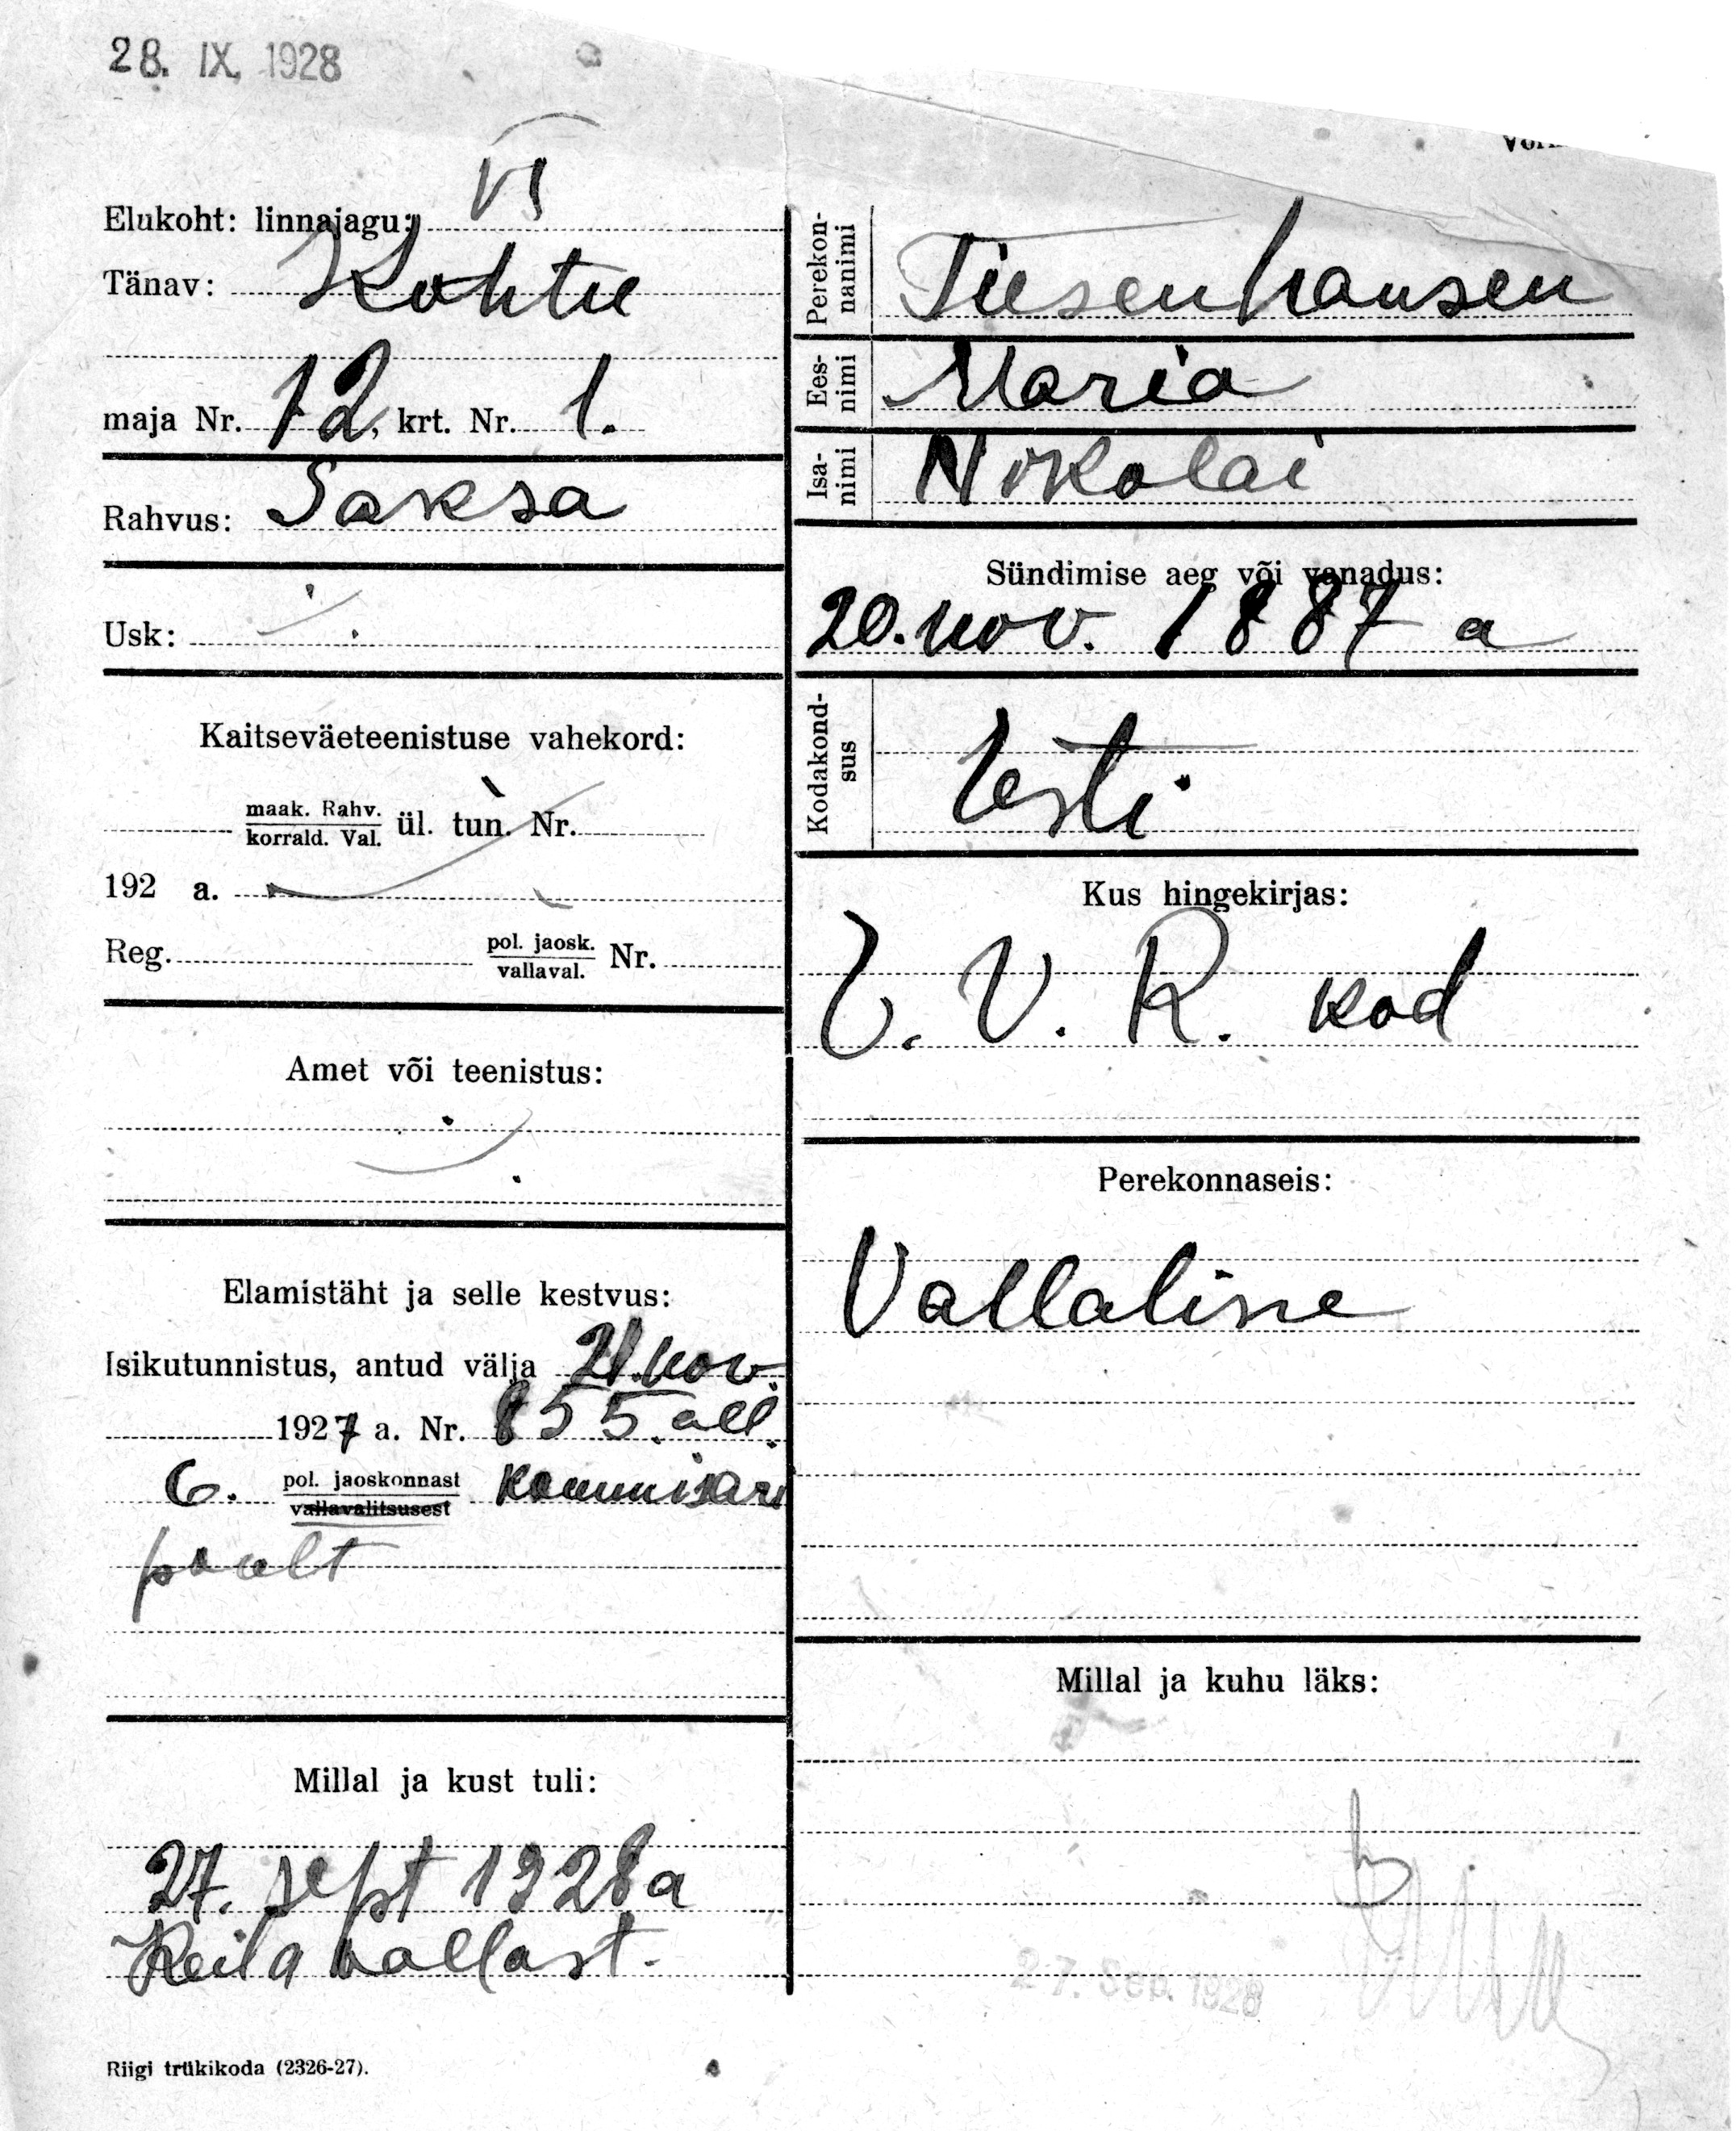 28. IX. 1928
VI
Elukoht: linnajagu:
Tänav: Kohtu
maja Nr. 12, krt. Nr. 1.
Rahvus: Saksa
Usk:
Kaitseväeteenistuse vahekord:
maak. Rahv.
korrald. Val. ül. tun. Nr.
192 a.
Reg. pol. jaosk.
vallaval. Nr.
Amet või teenistus:
Elamistäht ja selle kestvus:
Isikutunnistus, antud välja 21. nov.
1927 a. Nr. 855. all.
6. pol. jaoskonnast kommisari
vallavalitsusest
poolt
Millal ja kust tuli:
27. sept 1928 a
Keila vallast.
Riigi trükikoda (2326-27).
Perekon-
nanimi Tiesenhausen
Ees-
nimi Maria
Isa-
nimi Nikolai
Sündimise aeg või vanadus:
20. nov. 1887 a
Kodakond-
sus Eesti
Kus hingekirjas:
E. V. R. kod
Perekonnaseis:
Vallaline
Millal ja kuhu läks:
27. Sep. 1928